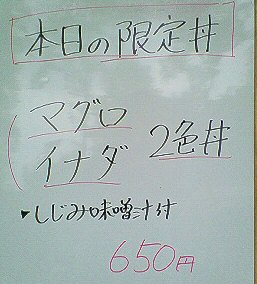 本日の限定丼
マグロ
イナダ 2色丼
▾しじみ味噌汁付
650円